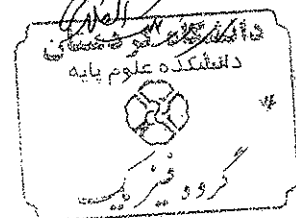 دانشگاه کردستان
دانشکده علوم پایه
گروه فیزیک